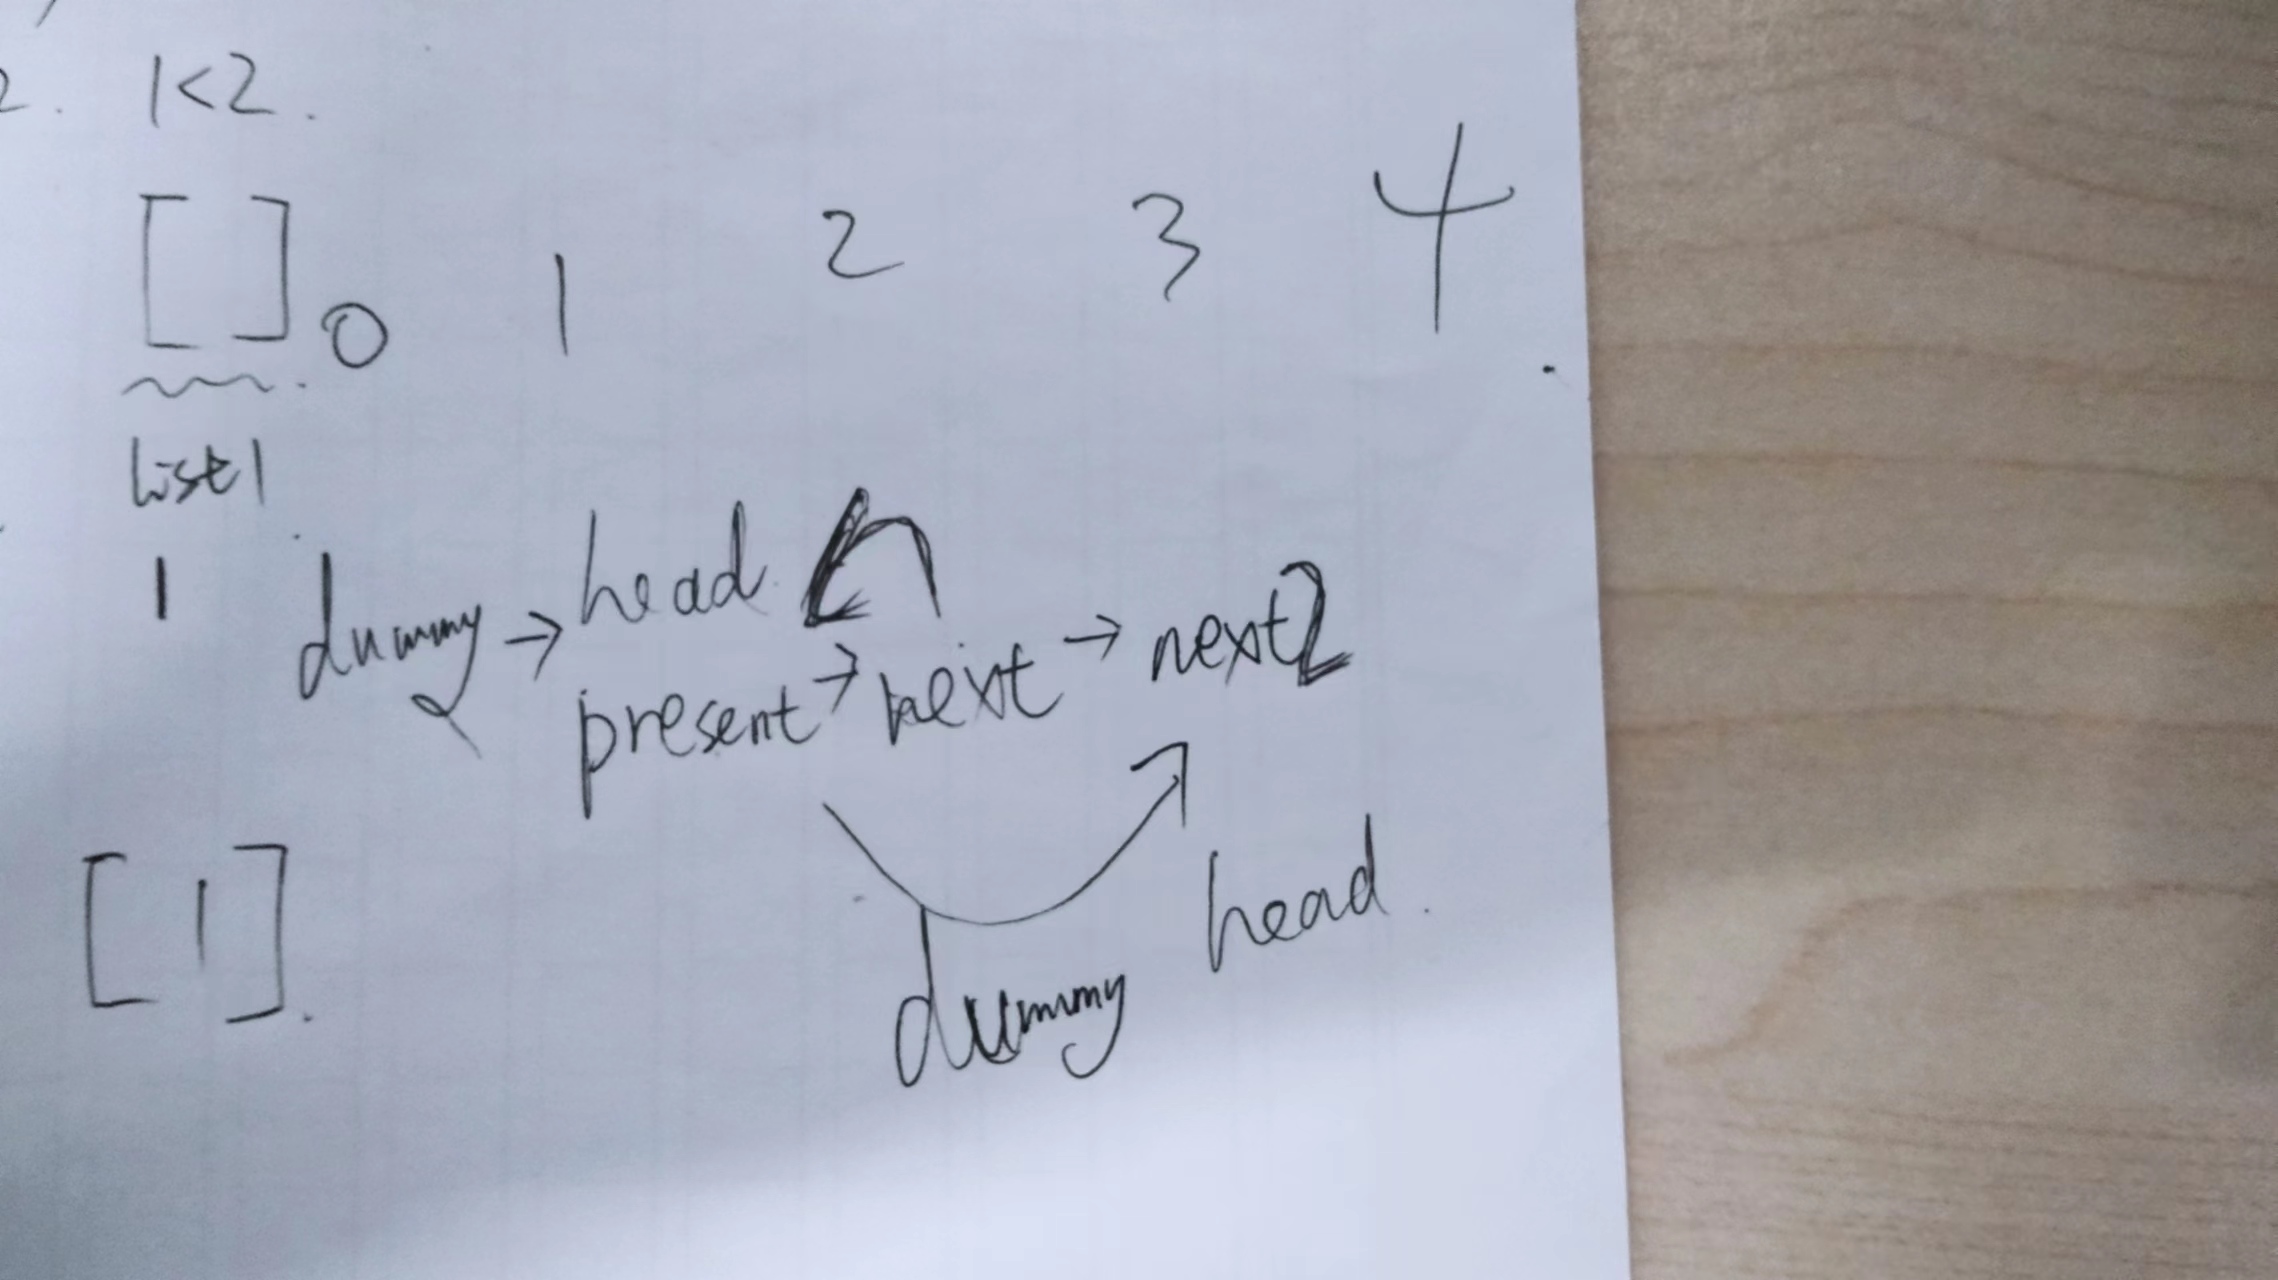 2. 1<2.
[ ]. 0 1 2 3 4
list1
1 dummy → head
present → next → next2
[ 1 ].
head.
dummy